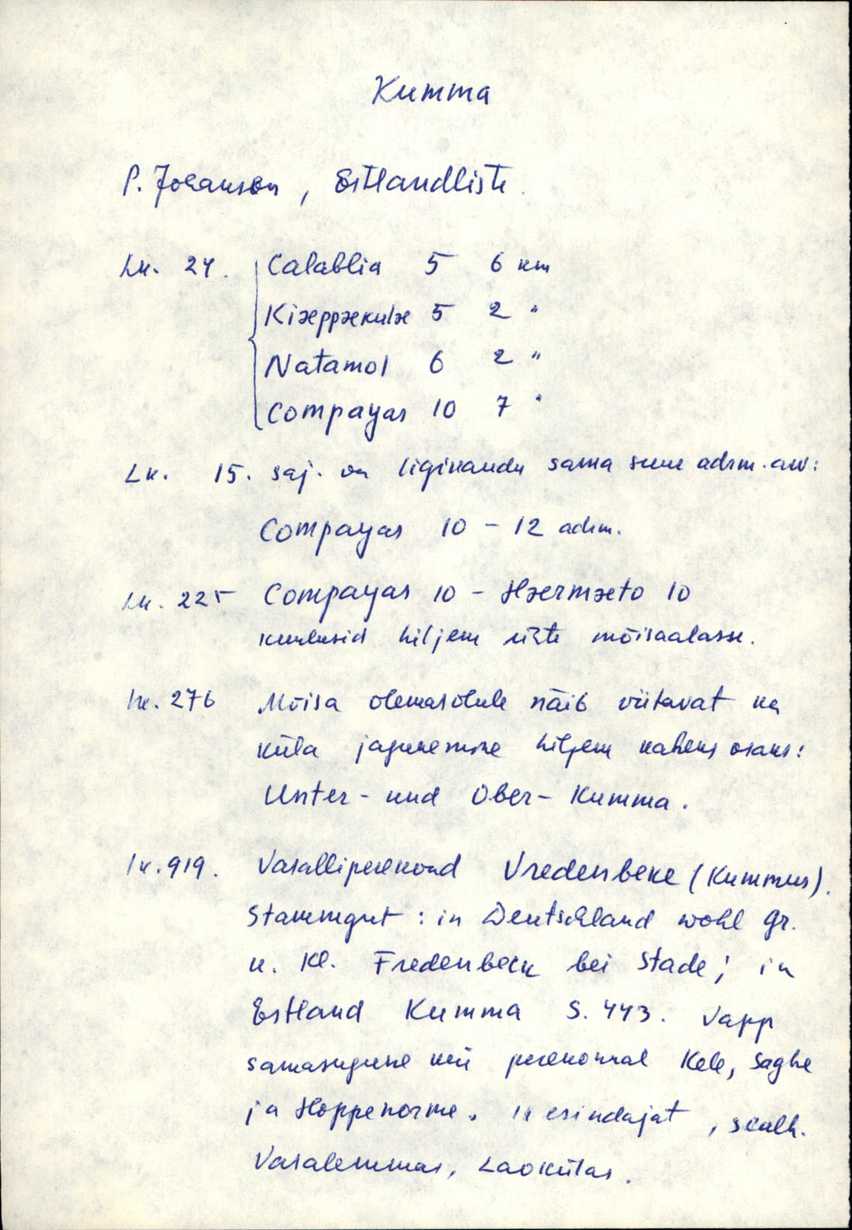 Kumma
P. Johansen, Estlandliste.
Lk. 24. Calablia 5 6 km
Kiæppækulæ 5 2 "
Natamol 6 2 "
Compayas 10 7 "
Lk. 15. saj. on ligikaudu sama suur adrm. arv:
Compayas 10 – 12 adrm.
Lk. 225 Compayas 10 – Hærmæto 10
kuulusid hiljem ühte mõisaalasse.
lk. 276 Mõisa olemasolule näib viitavat ka
küla jagunemine hiljem kaheks osaks:
Unter- und Ober- Kumma.
lk. 919. Vasalliperekond Vredenbeke (Kummus).
Stammgut: in Deutschland wohl Gr.
u. Kl. Fredenbeck bei Stade; in
Estland Kumma S. 443. Vapp
samasugune kui perekonnal Kele, Saghe
ja Hoppenorme. esindajat, sealh.
Vasalemmas, Laokülas.